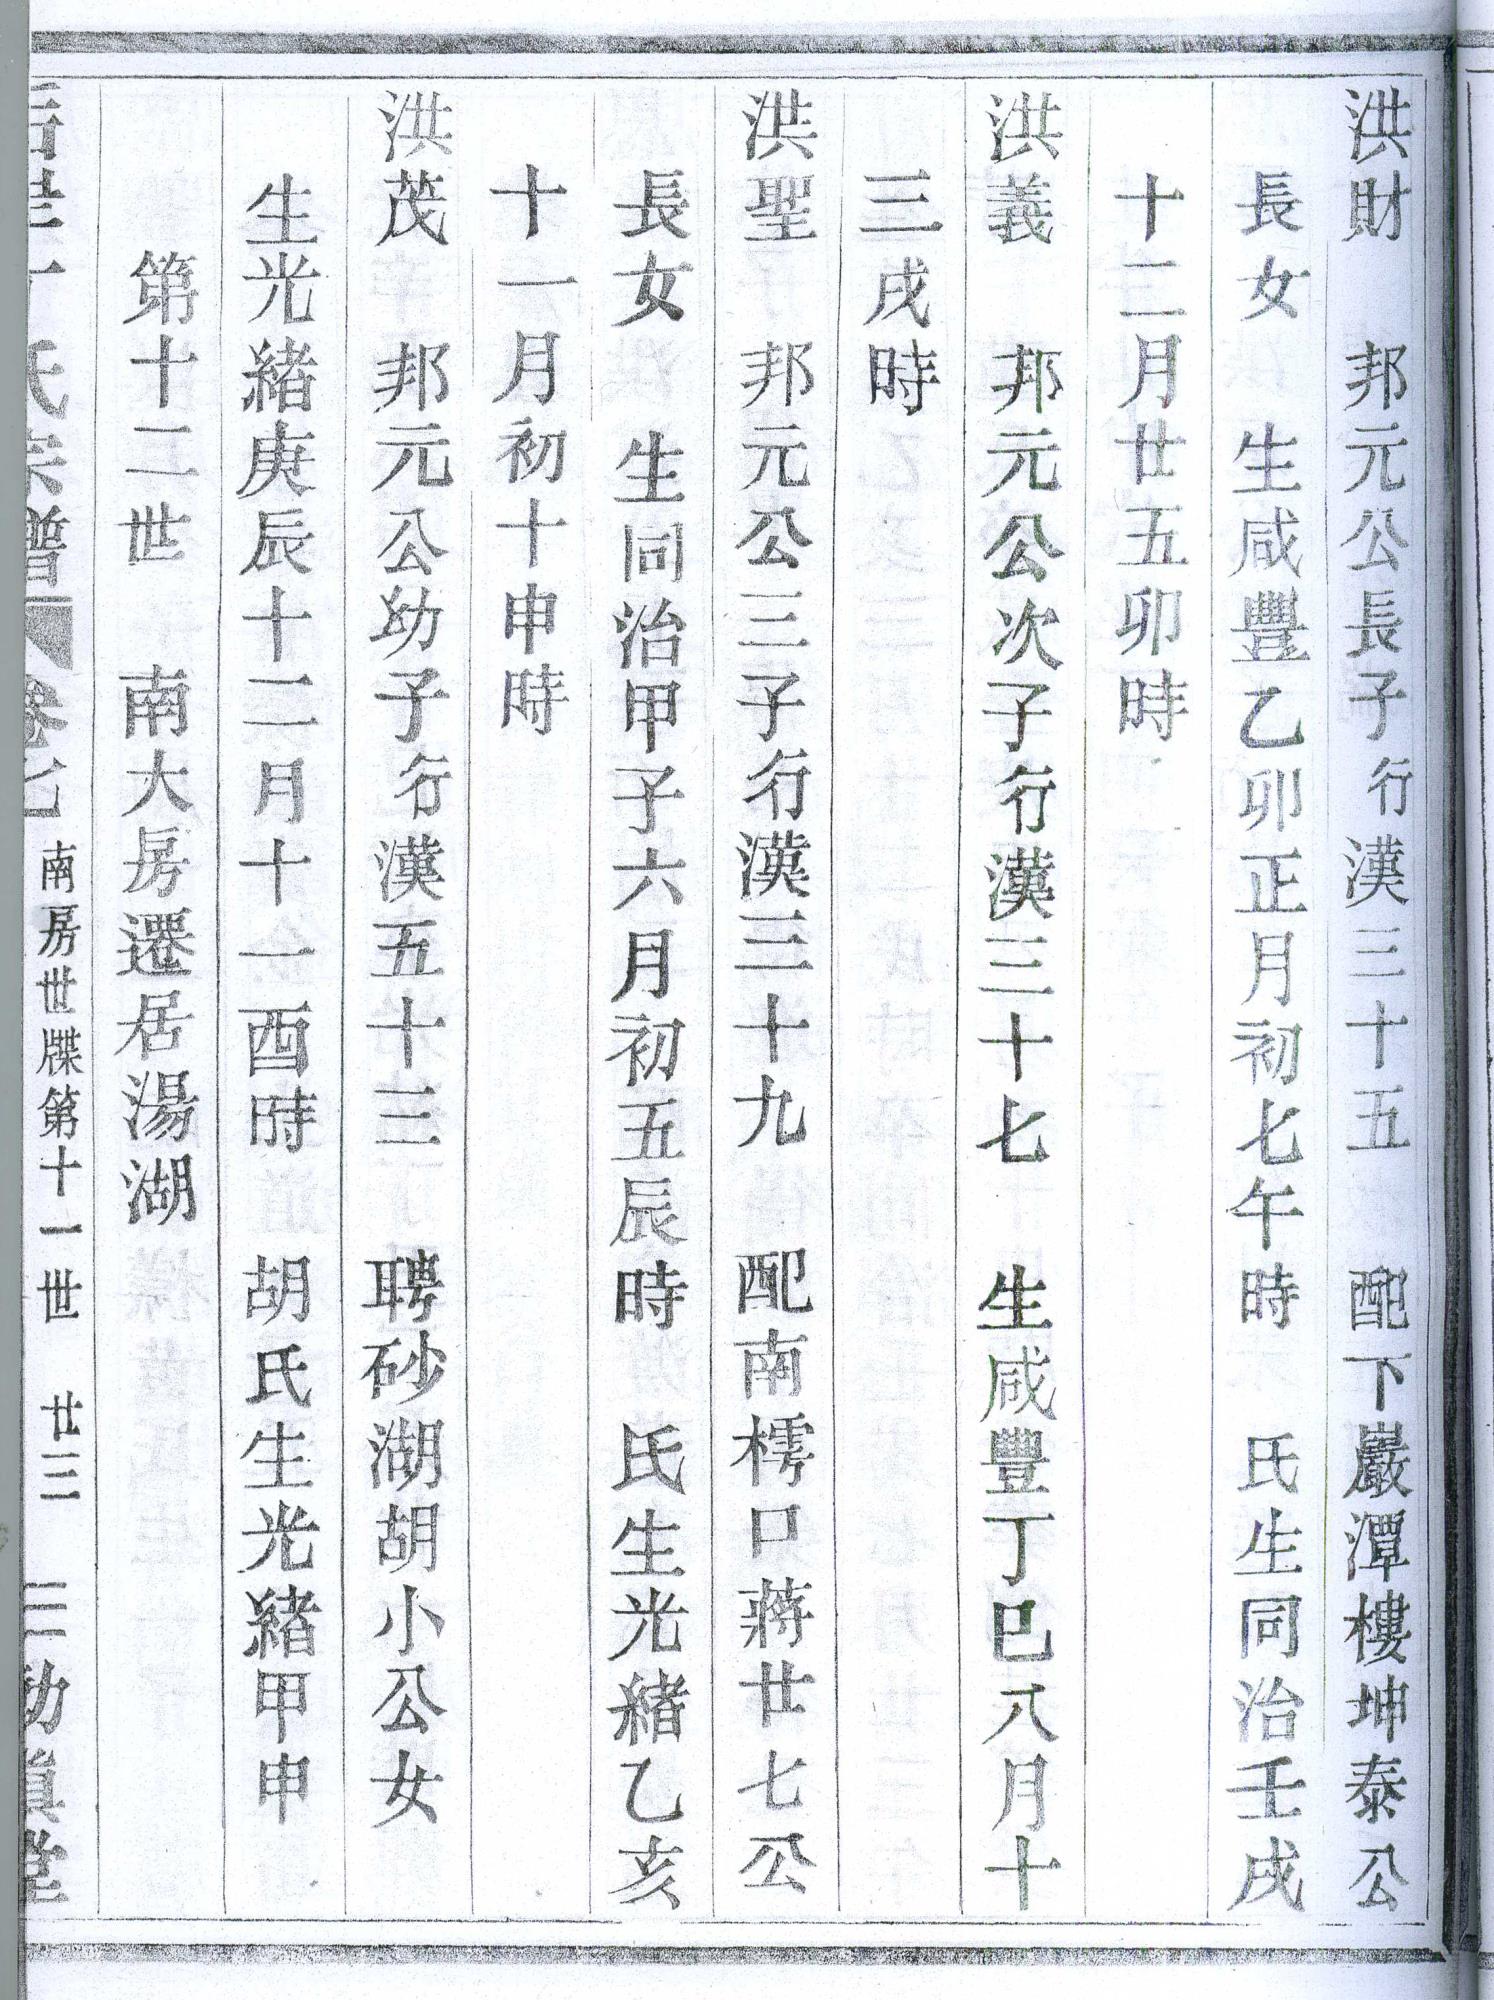 洪財 邦元公長子行漢三十五 配下巖潭樓坤泰公
長女 生咸豐乙卯正月初七午時 氏生同治壬戌
十二月廿五卯時
洪義 邦元公次子行漢三十七 生咸豐丁巳八月十
三戌時
洪聖 邦元公三子行漢三十九 配南樗口蔣廿七公
長女 生同治甲子六月初五辰時 氏生光緒乙亥
十一月初十申時
洪茂 邦元公幼子行漢五十三 聘砂湖胡小公女
生光緒庚辰十二月十一酉時 胡氏生光緒甲申
第十二世 南大房遷居湯湖
氏宗譜 卷之 南房世牒第十一世 廿三 堂